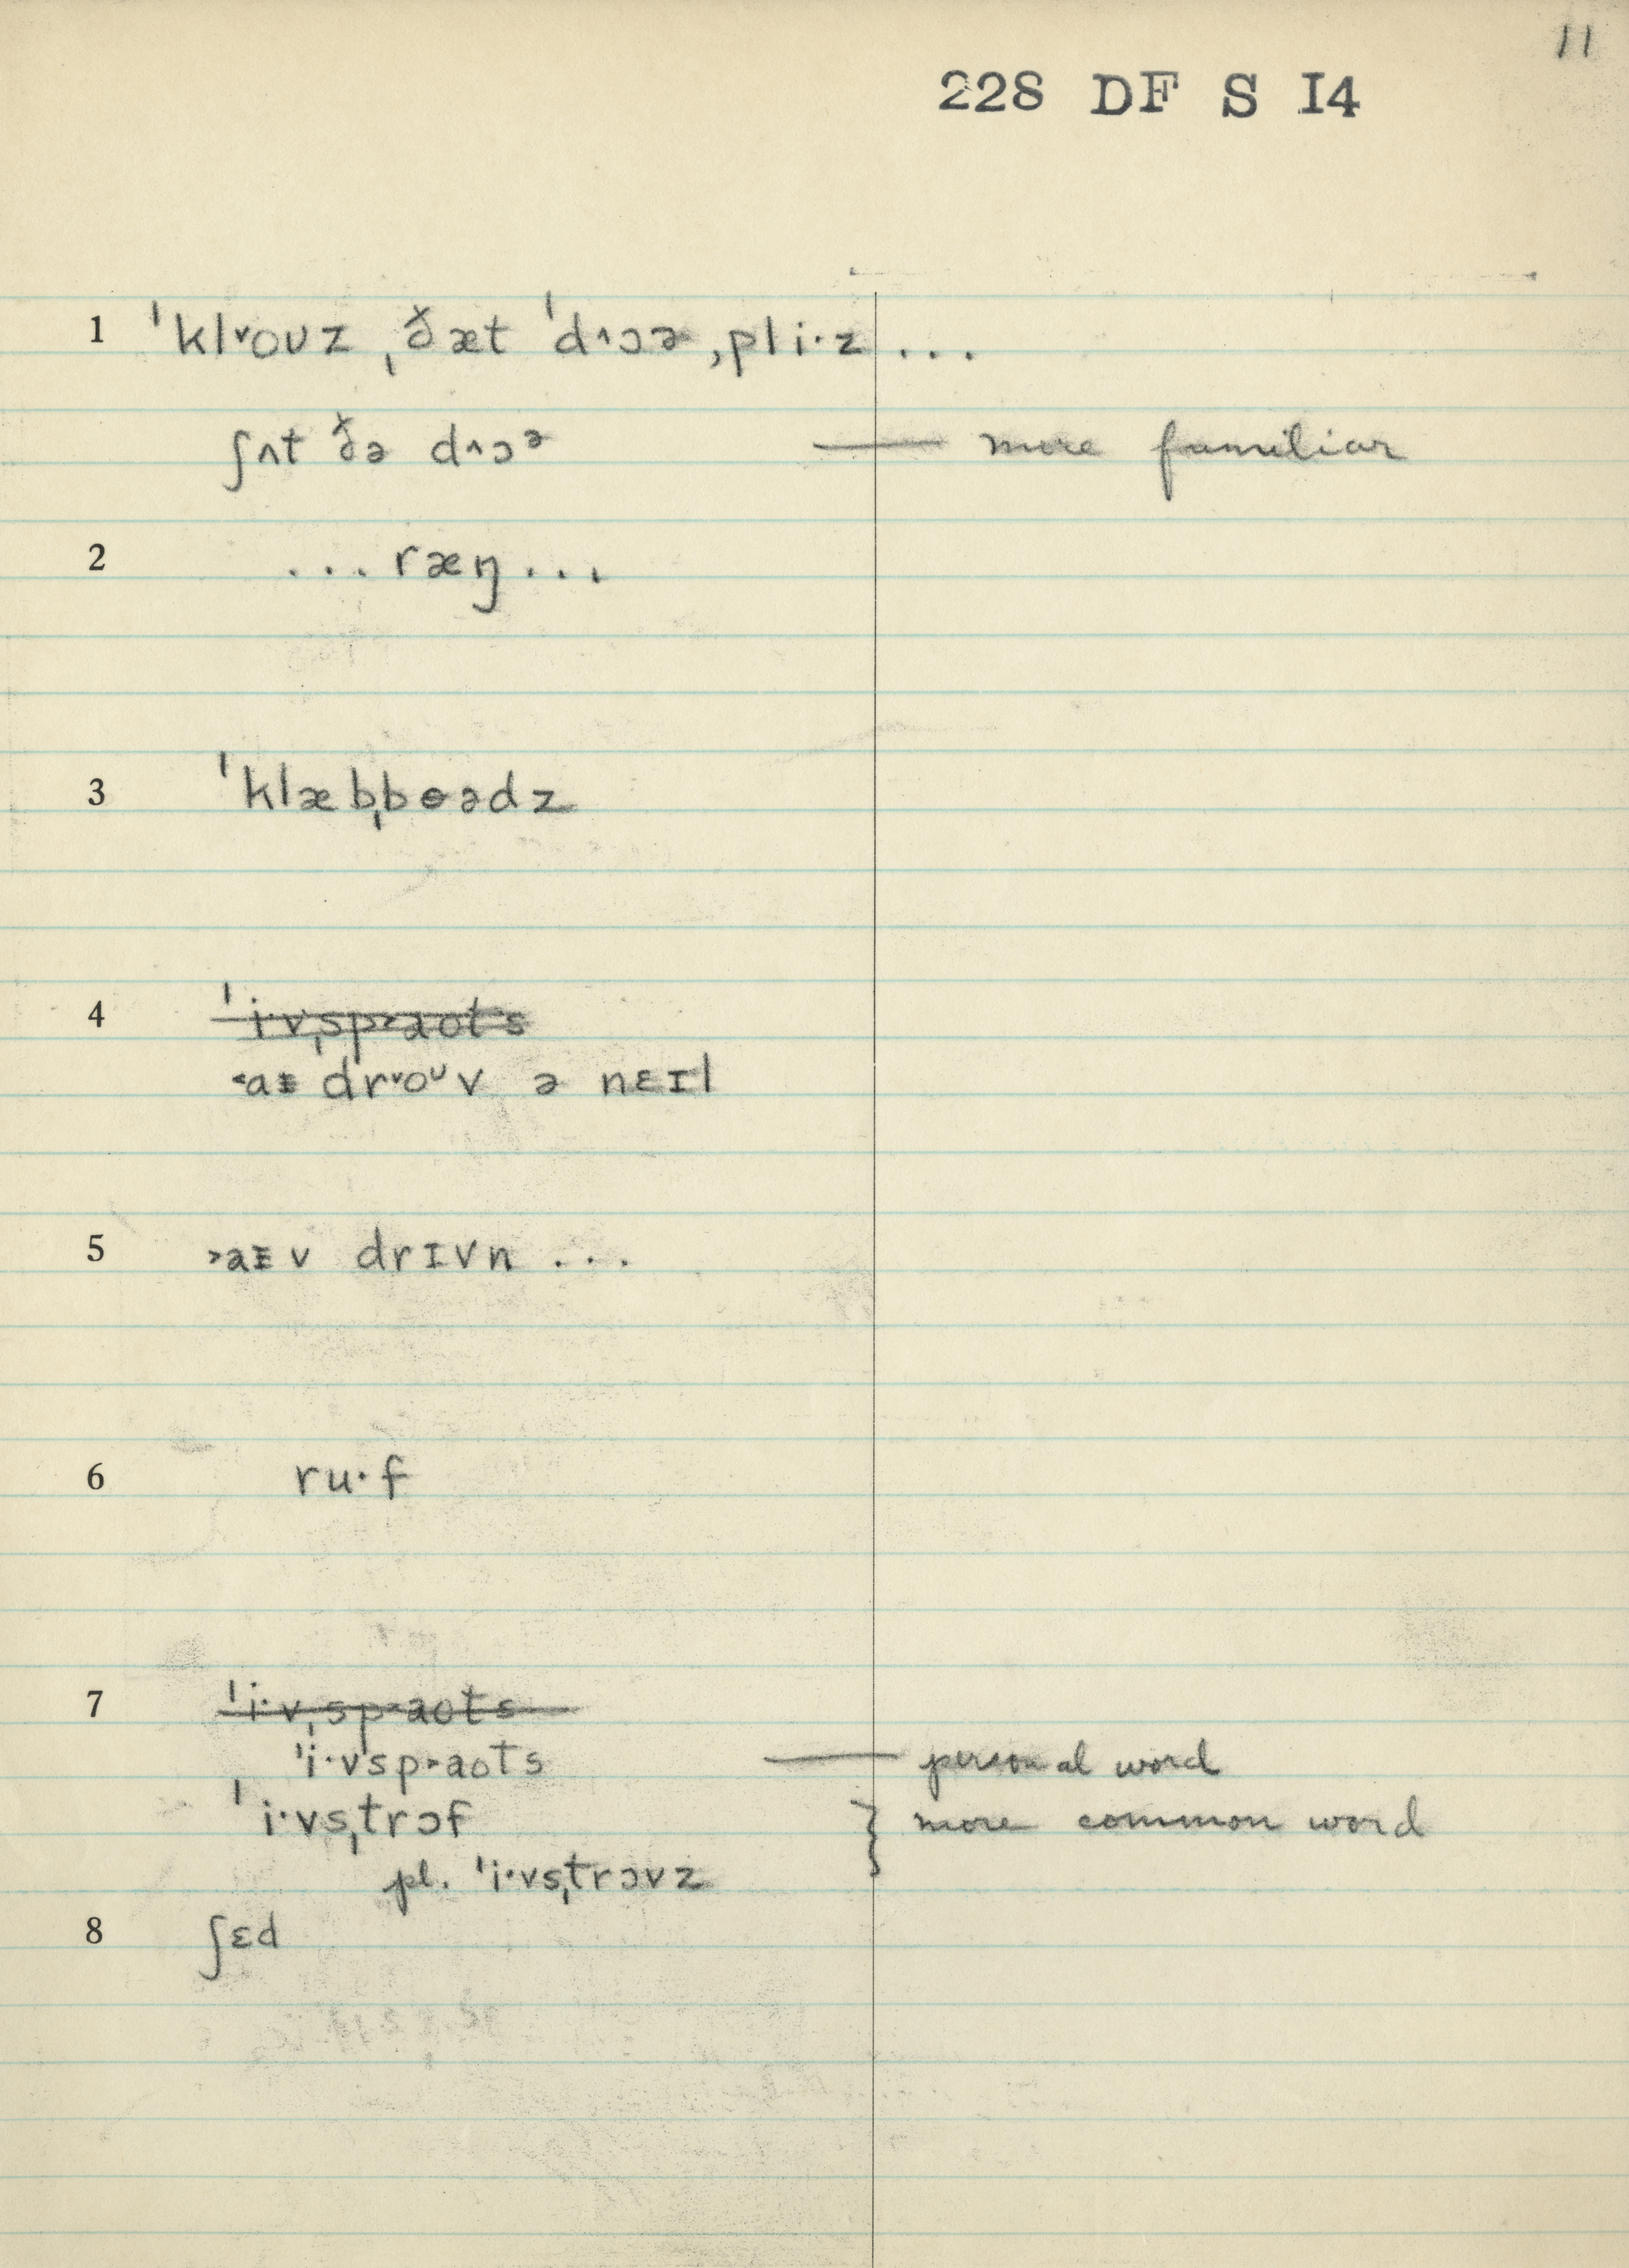 11
228 DF S I4
1 ˈklˇoʊz ˌðæt ˈd^ɔɚ ˌpli·z ...
ʃʌt ðə d^ɔᵊ — more familiar
2 ... ræŋ ...
3 ˈklæbˌbɵədz
4 ˈi·vˌsp˃aots
˂aᵻ drˇoᶷv ə nɛɪl
5 ˃aᵻv drɪvn ...
6 ru·f
7 ˈi·vˌsp˃aots
ˈi·vˌsp˃aots — personal word
ˈi·vsˌtrɔf } more common word
pl. ˈi·vsˌtrɔvz
8 ʃɛd